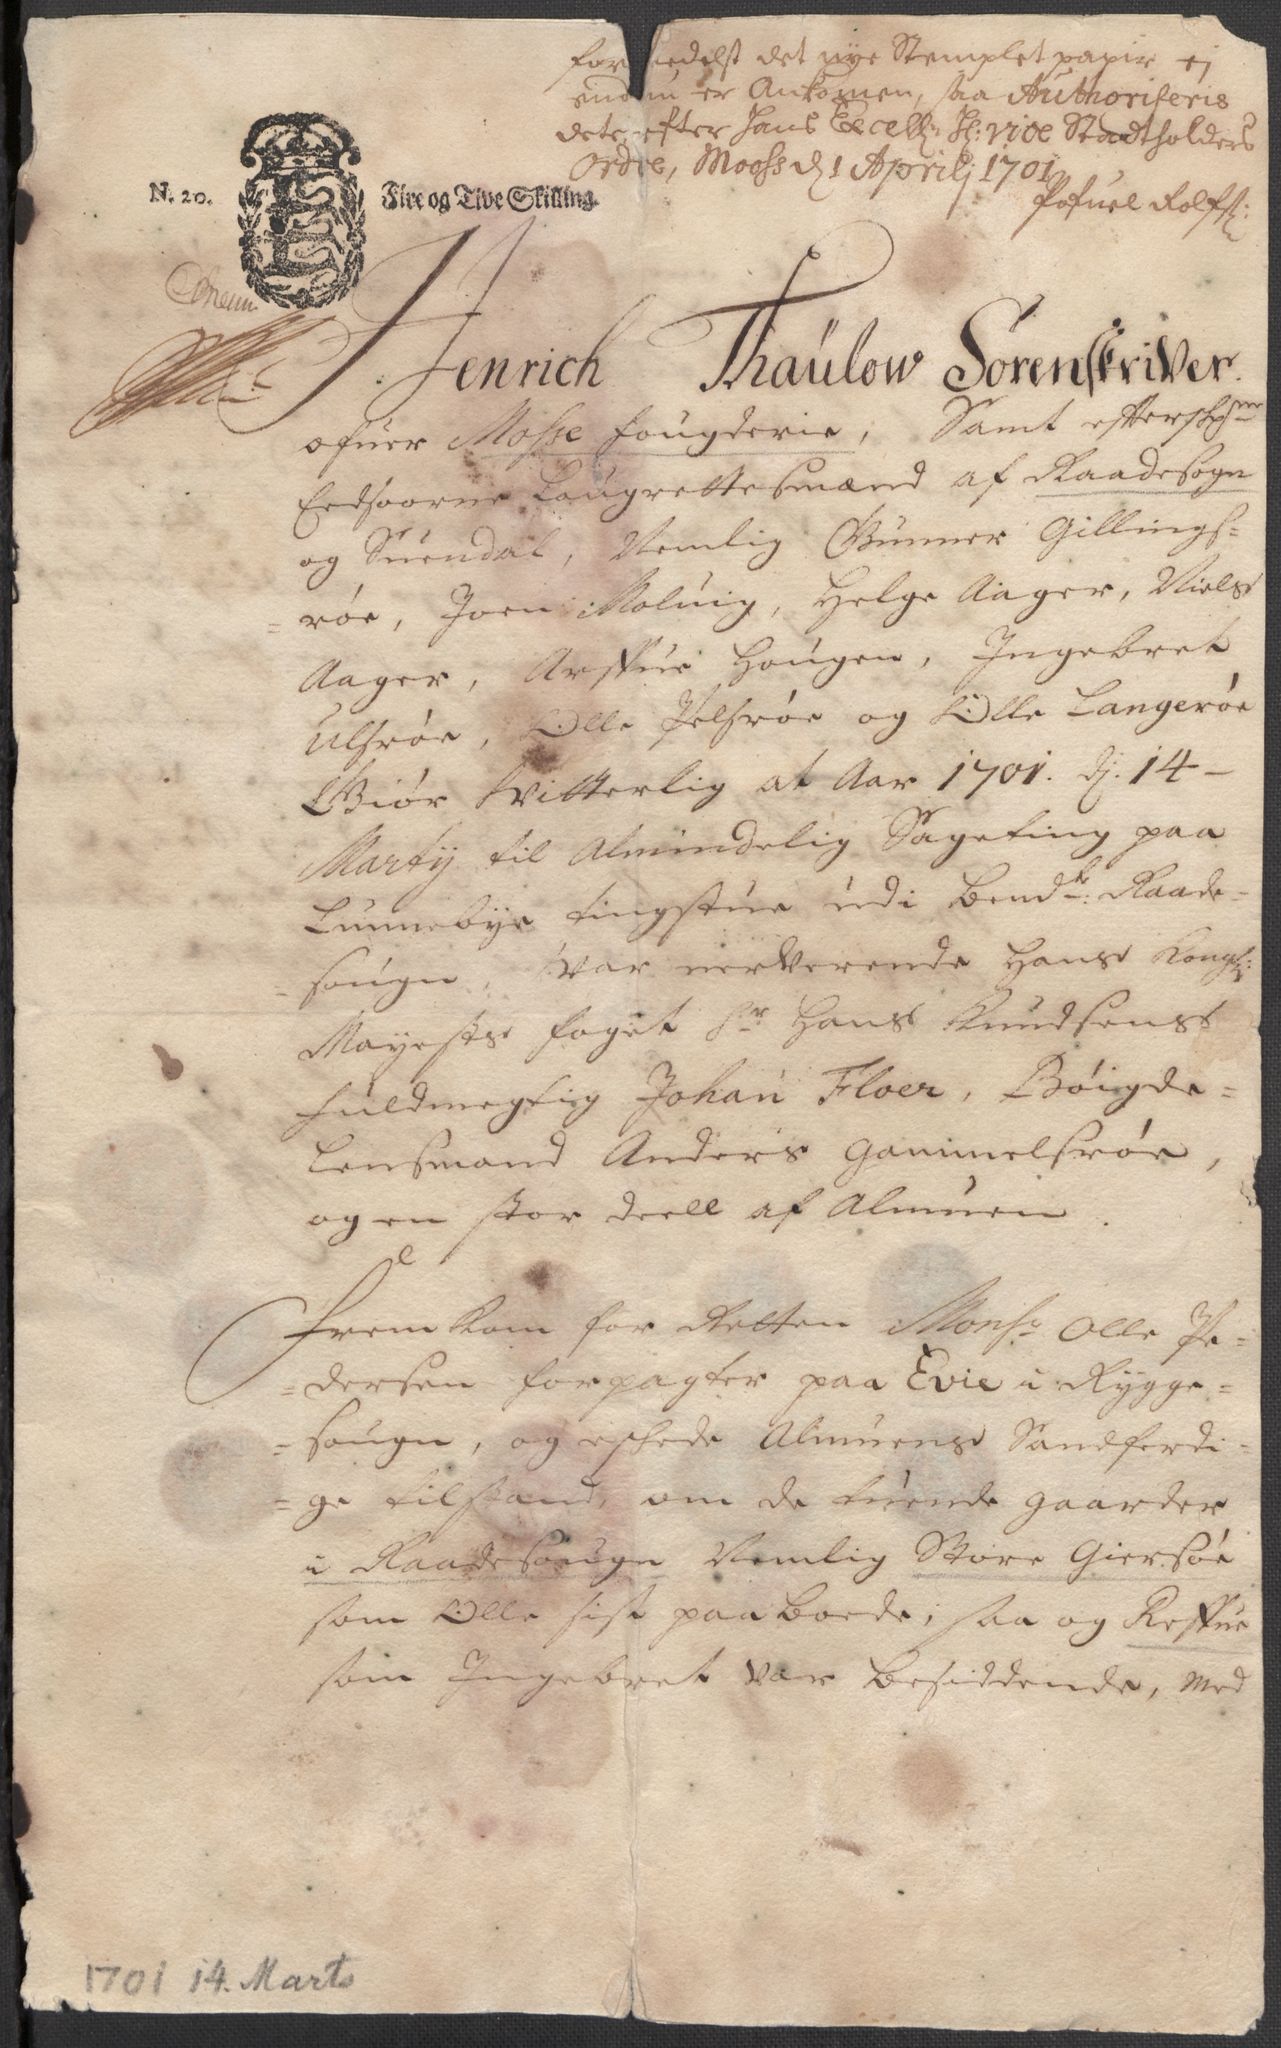 formedelst det nye Stemplet papir ej
endnu er Ankomen, saa Authoriseris
dete efter hans Excell: H: vice Stadtholders
Ordre, Moohs dj 1 Aprilj 1701
Pofuel Rolfs:
N. 20.
Fire og Tive Skilling.
Henrich Thaulow Sorenskriver
ofuer Mosse fougderie, Samt effterschne
Eedsoorne Laugrettesmænd af Raadesogn
og Suendal, Nemlig Gunner Gillings-
=røe, Joen Koluig, Helge Aager, Niels
Aager, Asskue Hougen, Ingebret
Ulsrøe, Olle Pelsrøe og Olle Langerøe
Giør Vitterlig at Aar 1701. dj. 14 -
Martij til Almindelig Sageting paa
Lunnebye tingstue udi bemdte: Raade-
=sougn, var nerverende Hans Kongl:
Mayests foget Sr Hans Knudsens
fuldmegtig Johan Floer, Bøigde-
Lensmand Anders Gammelsrøe,
og en stor deell af Almuen.
Frem kom for Retten Monsr Olle Pe-
=dersen forpagter paa Evie i Rygge-
=sougn, og eschede Almuens Sandferdi-
=ge tilstand, om de tuende gaarder
i Raadesougn Nemlig Store Giersøe
som Olle sist paaboede, saa og Reffue
som Ingebret var besiddende, Med
1701 14. Marts